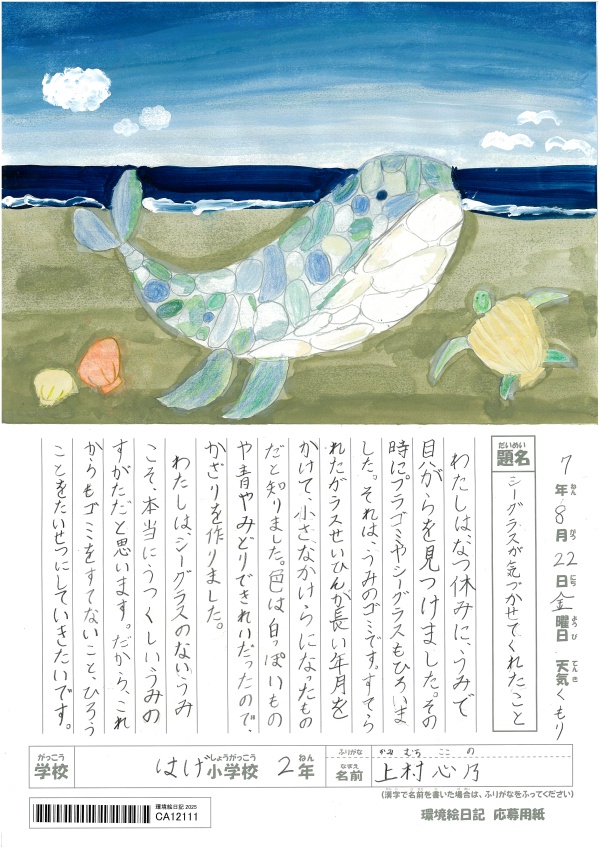 7年8月22日金曜日 天気くもり
ねん がつ にち ようび てんき
だいめい
題名
シーグラスが気づかせてくれたこと
わたしは、なつ休みに、うみで
貝がらを見つけました。その
時にプラゴミやシーグラスもひろいま
した。それは、うみのゴミです。すてら
れたガラスせいひんが長い年月を
かけて、小さなかけらになったもの
だと知りました。色は白っぽいもの
や青やみどりできれいだったので、
かざりを作りました。
わたしは、シーグラスのないうみ
こそ、本当にうつくしいうみの
すがただと思います。だから、これ
からもゴミをすてないこと、ひろう
ことをたいせつにしていきたいです。
がっこう しょうがっこう ねん
学校 はげ小学校 2年
ふりがな かみ むら ここ の
なまえ
名前 上村心乃
(漢字で名前を書いた場合は、ふりがなをふってください)
環境絵日記 2025
CA12111
環境絵日記 応募用紙